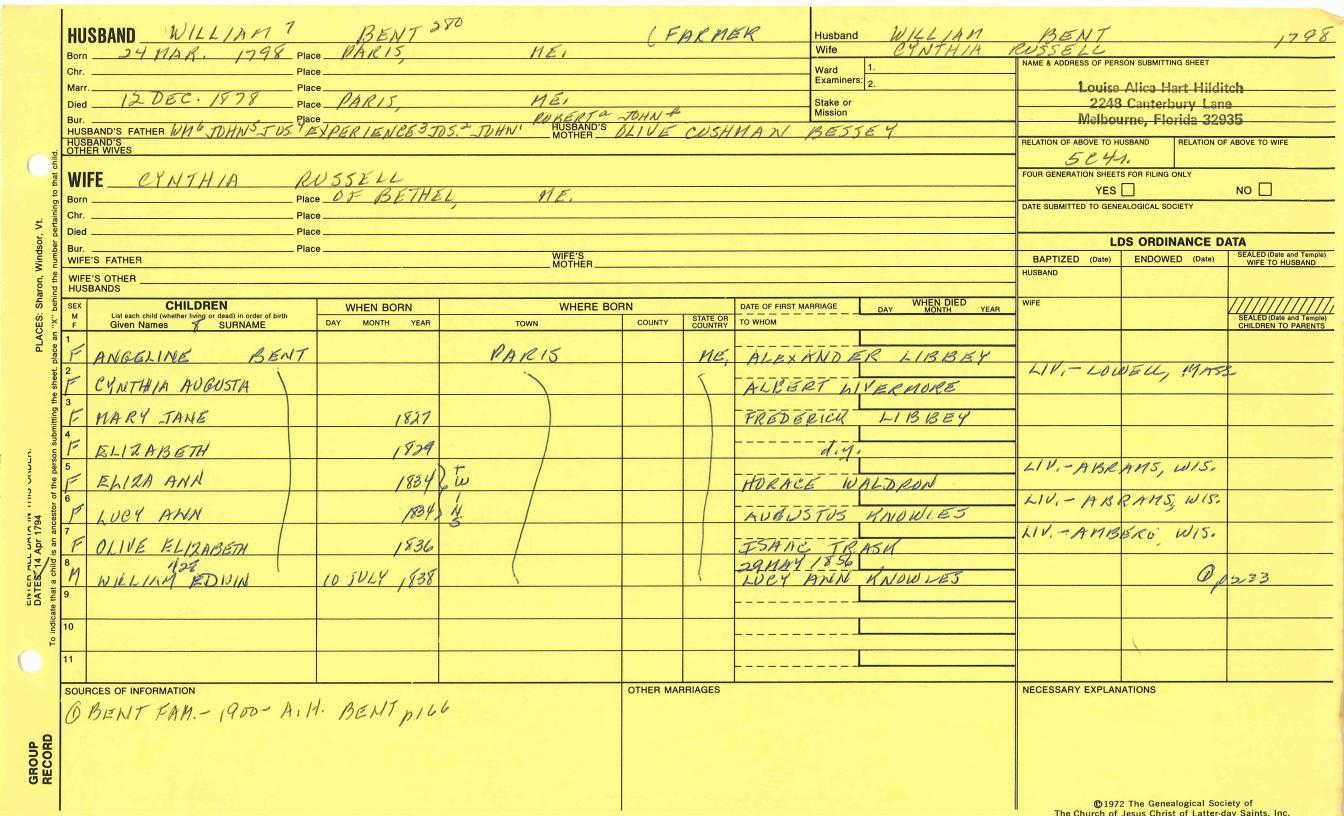 HUSBAND WILLIAM 7 BENT 280 (FARMER
Born 24 MAR. 1798 Place PARIS, ME.
Chr. Place
Marr. Place
Died 12 DEC. 1878 Place PARIS, ME.
Bur. Place
HUSBAND'S FATHER WM6 JOHN5 JOS4 EXPERIENCE3 JOS.2 JOHN1 ROBERTa JOHN HUSBAND'S MOTHER OLIVE CUSHMAN BESSEY
HUSBAND'S OTHER WIVES
WIFE CYNTHIA RUSSELL
Born Place OF BETHEL, ME.
Chr. Place
Died Place
Bur. Place
WIFE'S FATHER WIFE'S MOTHER
WIFE'S OTHER HUSBANDS
Husband WILLIAM BENT 1798
Wife CYNTHIA RUSSELL
Ward Examiners: 1. 2.
Stake or Mission
NAME & ADDRESS OF PERSON SUBMITTING SHEET
Louise Alice Hart Hilditch
2248 Canterbury Lane
Melbourne, Florida 32935
RELATION OF ABOVE TO HUSBAND RELATION OF ABOVE TO WIFE
5C4r.
FOUR GENERATION SHEETS FOR FILING ONLY
YES NO
DATE SUBMITTED TO GENEALOGICAL SOCIETY
LDS ORDINANCE DATA
BAPTIZED (Date) ENDOWED (Date) SEALED (Date and Temple) WIFE TO HUSBAND
HUSBAND
WIFE
SEALED (Date and Temple) CHILDREN TO PARENTS
SEX M F CHILDREN WHEN BORN WHERE BORN DATE OF FIRST MARRIAGE WHEN DIED
List each child (whether living or dead) in order of birth
Given Names 8 SURNAME DAY MONTH YEAR TOWN COUNTY STATE OR COUNTRY TO WHOM DAY MONTH YEAR
1 F ANGELINE BENT PARIS ME. ALEXANDER LIBBEY
2 F CYNTHIA AUGUSTA ALBERT LIVERMORE LIV.- LOWELL, MASS
3 F MARY JANE 1827 FREDERICK LIBBEY
4 F ELIZABETH 1829 d.y.
5 F ELIZA ANN 1834 TWINS HORACE WALDRON LIV.- ABRAMS, WIS.
6 F LUCY ANN 1834 AUGUSTUS KNOWLES LIV.- ABRAMS, WIS.
7 F OLIVE ELIZABETH 1836 ISAAC TRASK LIV.- AMBERG, WIS.
8 M WILLIAM EDWIN 728 10 JULY 1838 29 MAY 1856 LUCY ANN KNOWLES ① p233
9
10
11
SOURCES OF INFORMATION OTHER MARRIAGES NECESSARY EXPLANATIONS
① BENT FAM.- 1900- A.H. BENT p166
PLACES: Sharon, Windsor, Vt.
DATES: 14 Apr 1794
To indicate that a child is an ancestor of the person submitting the sheet, place an "X" behind the number pertaining to that child.
GROUP RECORD
©1972 The Genealogical Society of
The Church of Jesus Christ of Latter-day Saints, Inc.